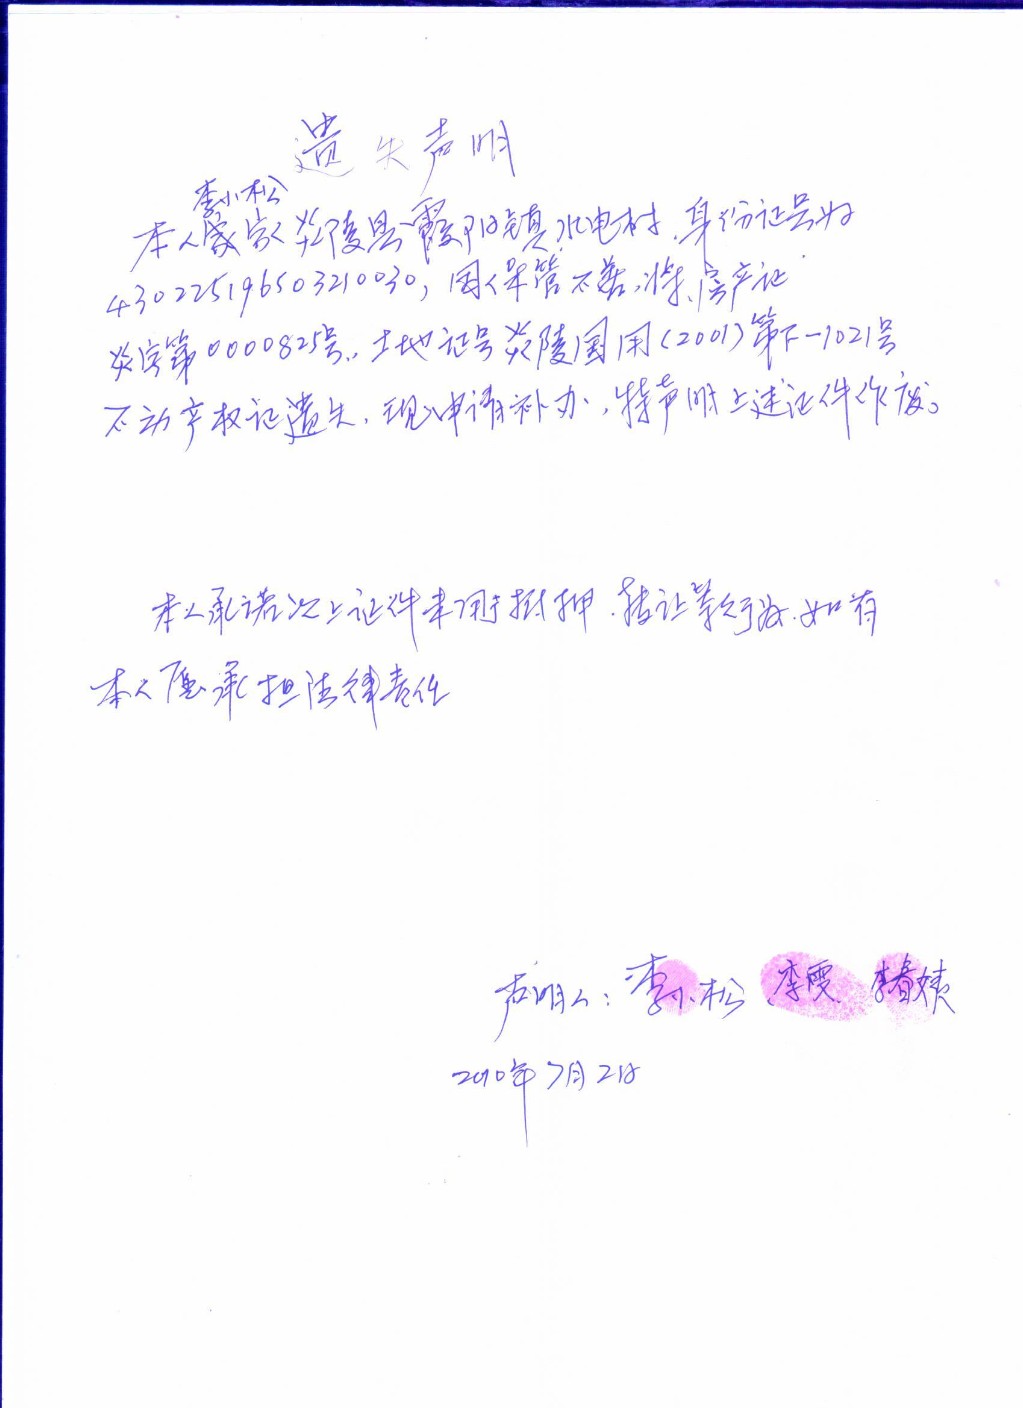 遗失声明
李小松
本人家家炎陵县霞阳镇水电村,身份证号为
430225196503210030,因保管不善,将房产证
炎房第0000825号,土地证号炎陵国用(2001)第下-1021号
不动产权证遗失,现申请补办,特声明上述证件作废。
本人承诺次上证件未用于抵押、转让等行为,如有
本人愿承担法律责任
声明人:李小松 李雯 李春姨
2010年7月2日